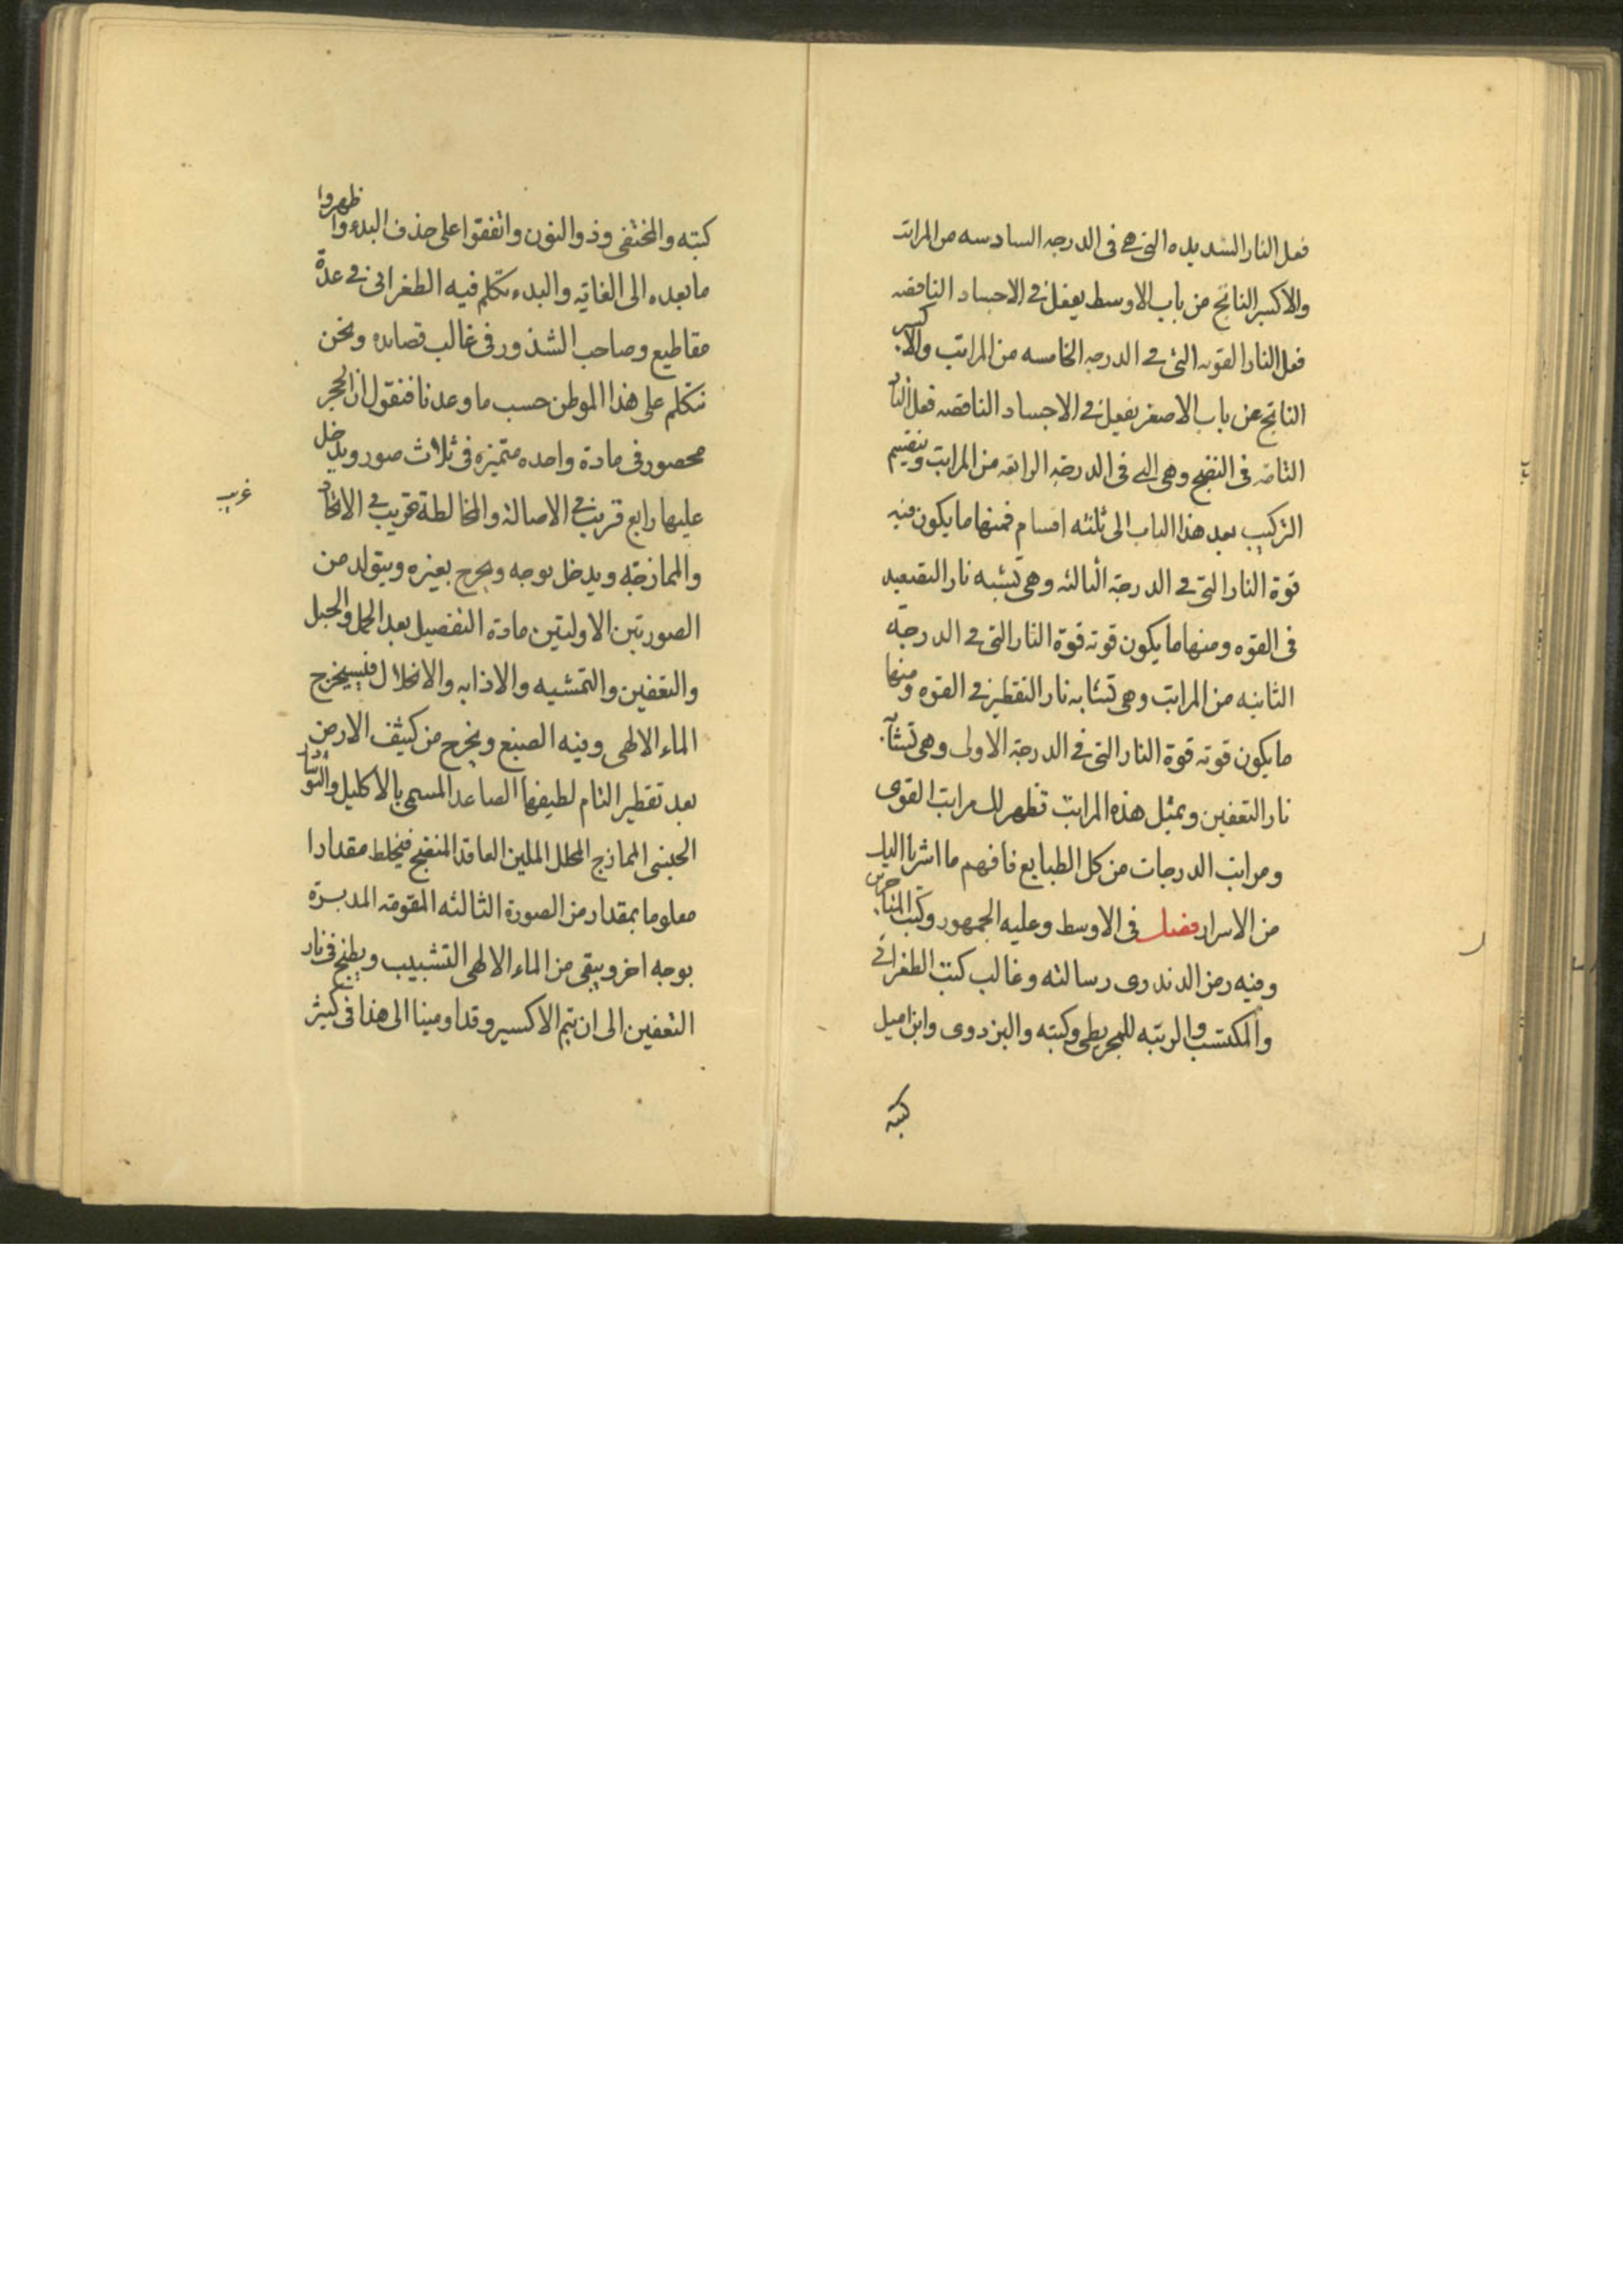 فعل النار الشديده التى هى فى الدرجه السادسه من المراتب
والاكسير الناتج من باب الاوسط يفعل فى الاجساد الناقصه
فعل النار القويه التى فى الدرجه الخامسه من المراتب والاكسير
الناتج عن باب الاصغر يفعل فى الاجساد الناقصه فعل النار
التامه فى النضج وهى التى فى الدرجة الرابعه من المراتب وينقسم
التركيب بعد هذا الباب الى ثلثه اقسام فمنها ما يكون فيه
قوة النار التى فى الدرجة الثالثه وهى تشبه نار التصعيد
فى القوه ومنها ما يكون قوته قوة النار التى فى الدرجة
الثانيه من المراتب وهى تشابه نار التقطير فى القوه ومنها
ما يكون قوته قوة النار التى فى الدرجة الاولى وهى تشابه
نار التعفين وبمثل هذه المراتب تظهر لك مراتب القوى
ومراتب الدرجات من كل الطبايع فافهم ما اشرنا اليك
من الاسرار فصل فى الاوسط وعليه الجمهور وكتب المتاخرين
وفيه رمز الدندرى رسالته وغالب كتب الطغرائى
والمكتسب والرتبه للمجريطى وكتبه والبزدوى وابن اميل
كتبه
كتبه والمختفى وذو النون واتفقوا على حذف البدء واظهروا
ما بعده الى الغاية والبدء تكلم فيه الطغرائى فى عدة
مقاطيع وصاحب الشذور فى غالب قصايده ونحن
نتكلم على هذا الموطن حسب ما وعدنا فنقول ان الحجر
محصور فى مادة واحده متميزه فى ثلاث صور ويدخل
عليها رابع قريب فى الاصالة والمخالطة غريب فى الاتحاد
غريب
والممازجة ويدخل بوجه ويخرج بغيره ويتولد من
الصورتين الاوليتين مادة التفصيل بعد الحمل والحبل
والتعفين والتمشيه والاذابه والانحلال فيستخرج
الماء الالهى وفيه الصبغ ويخرج من كثيف الارض
بعد تقطير التام لطيفها الصاعد المسمى بالاكليل والنوشادر
الجبنى الممازج المحلل الملين العاقد المنضج فيخلط مقدارا
معلوما بمقدار من الصورة الثالثه المقومه المدبرة
بوجه اخر ويبقى من الماء الالهى التشبيب ويطبخ فى نار
التعفين الى ان يتم الاكسير وقد اومينا الى هذا فى كثير